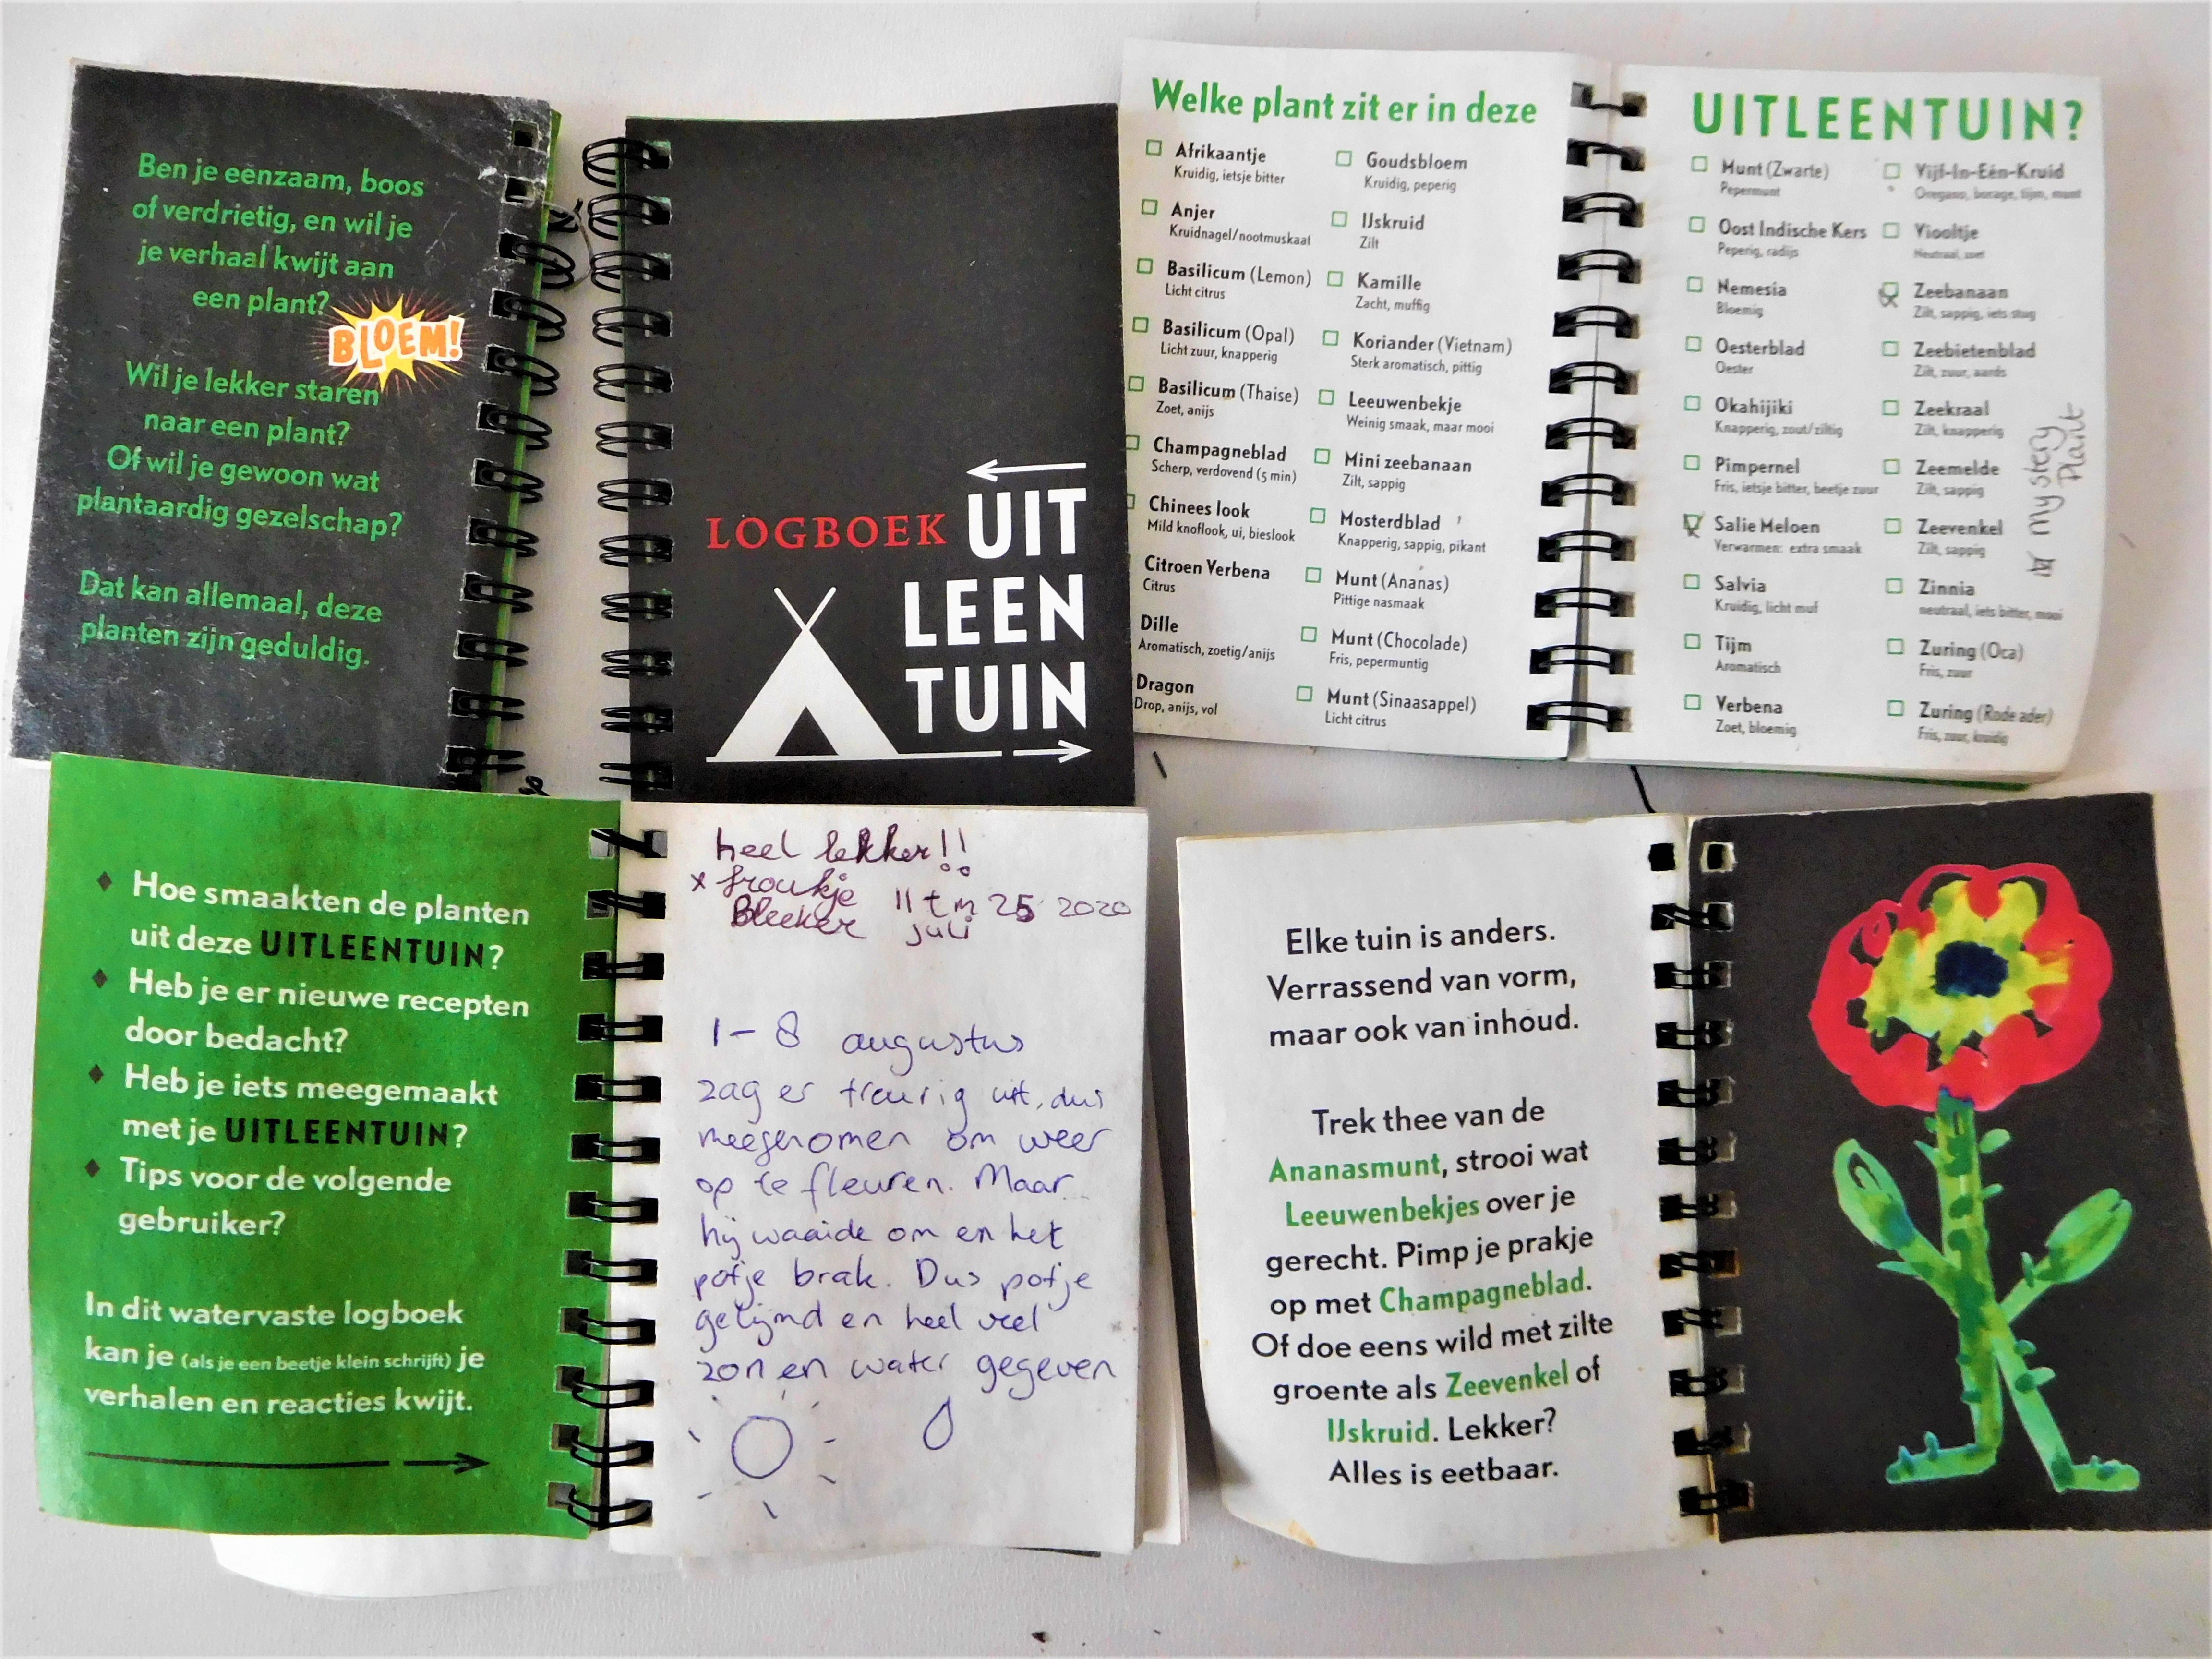 Ben je eenzaam, boos
of verdrietig, en wil je
je verhaal kwijt aan
een plant?
BLOEM!
Wil je lekker staren
naar een plant?
Of wil je gewoon wat
plantaardig gezelschap?
Dat kan allemaal, deze
planten zijn geduldig.
LOGBOEK UIT
LEEN
TUIN
Welke plant zit er in deze
Afrikaantje
Kruidig, ietsje bitter
Anjer
Kruidnagel/nootmuskaat
Basilicum (Lemon)
Licht citrus
Basilicum (Opal)
Licht zuur, knapperig
Basilicum (Thaise)
Zoet, anijs
Champagneblad
Scherp, verdovend (5 min)
Chinees look
Mild knoflook, ui, bieslook
Citroen Verbena
Citrus
Dille
Aromatisch, zoetig/anijs
Dragon
Drop, anijs, vol
Goudsbloem
Kruidig, peperig
IJskruid
Zilt
Kamille
Zacht, muffig
Koriander (Vietnam)
Sterk aromatisch, pittig
Leeuwenbekje
Weinig smaak, maar mooi
Mini zeebanaan
Zilt, sappig
Mosterdblad
Knapperig, sappig, pikant
Munt (Ananas)
Pittige nasmaak
Munt (Chocolade)
Fris, pepermuntig
Munt (Sinaasappel)
Licht citrus
UITLEENTUIN?
Munt (Zwarte)
Pepermunt
Oost Indische Kers
Peperig, radijs
Nemesia
Bloemig
Oesterblad
Oester
Okahijiki
Knapperig, zout/ziltig
Pimpernel
Fris, ietsje bitter, beetje zuur
Salie Meloen
Verwarmen: extra smaak
Salvia
Kruidig, licht muf
Tijm
Aromatisch
Verbena
Zoet, bloemig
Vijf-In-Eén-Kruid
Oregano, borage, tijm, munt
Viooltje
Neutraal, zoet
Zeebanaan
Zilt, sappig, iets stug
Zeebietenblad
Zilt, zuur, aards
Zeekraal
Zilt, knapperig
Zeemelde
Zilt, sappig
Zeevenkel
Zilt, sappig
Zinnia
neutraal, iets bitter, mooi
Zuring (Oca)
Fris, zuur
Zuring (Rode ader)
Fris, zuur, kruidig
my stery
plant
Hoe smaakten de planten
uit deze UITLEENTUIN?
Heb je er nieuwe recepten
door bedacht?
Heb je iets meegemaakt
met je UITLEENTUIN?
Tips voor de volgende
gebruiker?
In dit watervaste logboek
kan je (als je een beetje klein schrijft) je
verhalen en reacties kwijt.
heel lekker!!
x froukje 11 tm 25 2020
Bleeker juli
1-8 augustus
zag er treurig uit, dus
meegenomen om weer
op te fleuren. Maar..
hij waaide om en het
potje brak. Dus potje
gelijmd en heel veel
zon en water gegeven
Elke tuin is anders.
Verrassend van vorm,
maar ook van inhoud.
Trek thee van de
Ananasmunt, strooi wat
Leeuwenbekjes over je
gerecht. Pimp je prakje
op met Champagneblad.
Of doe eens wild met zilte
groente als Zeevenkel of
IJskruid. Lekker?
Alles is eetbaar.